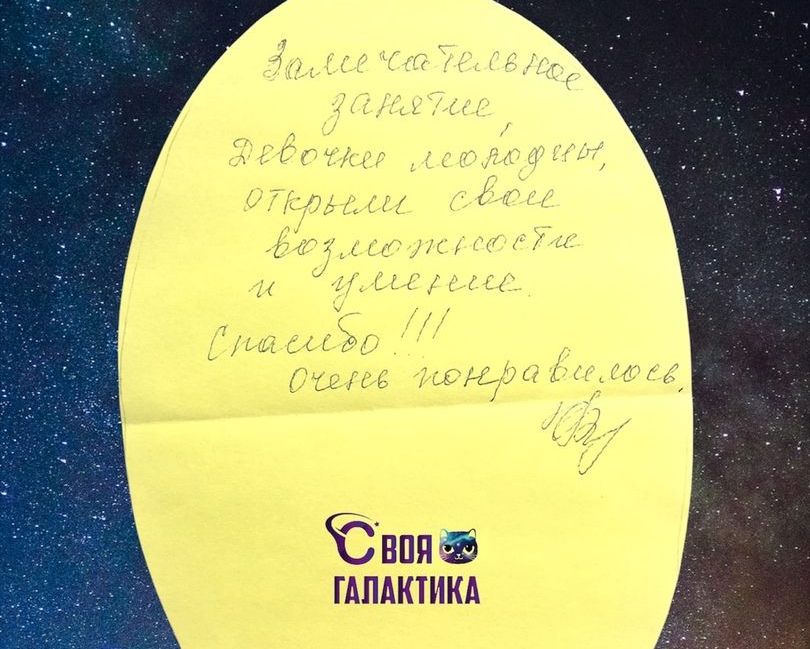 Замечательное
занятие,
Девочки молодцы,
открыли свои
возможности
и умение.
Спасибо!!!
Очень понравилось.
СВОЯ
ГАЛАКТИКА